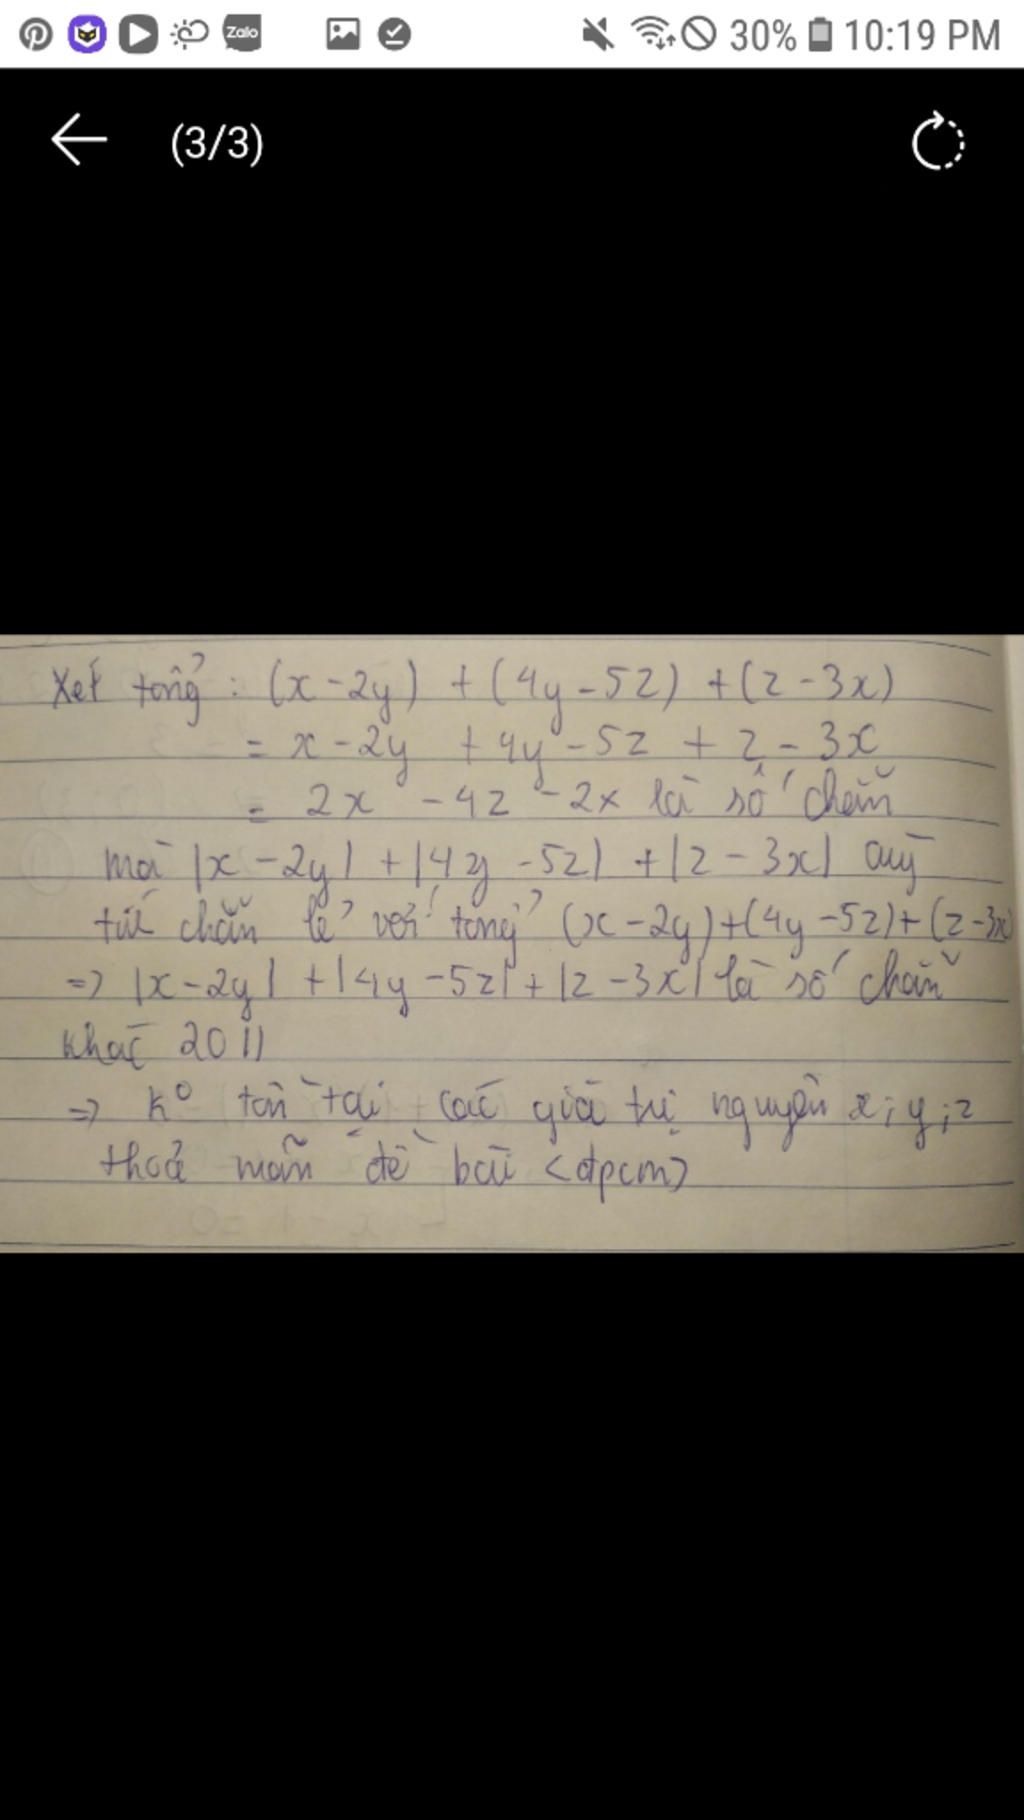 Zalo 30% 10:19 PM
(3/3)
Xét tổng : (x - 2y) + (4y - 5z) + (z - 3x)
= x - 2y + 4y - 5z + z - 3x
= 2x - 4z - 2x là số chẵn
mà |x - 2y| + |4y - 5z| + |z - 3x| cùng
tính chẵn lẻ với tổng (x - 2y) + (4y - 5z) + (z - 3x)
=> |x - 2y| + |4y - 5z| + |z - 3x| là số chẵn
khác 2011
=> k⁰ tồn tại các giá trị nguyên x; y; z
thoả mãn đề bài <đpcm>